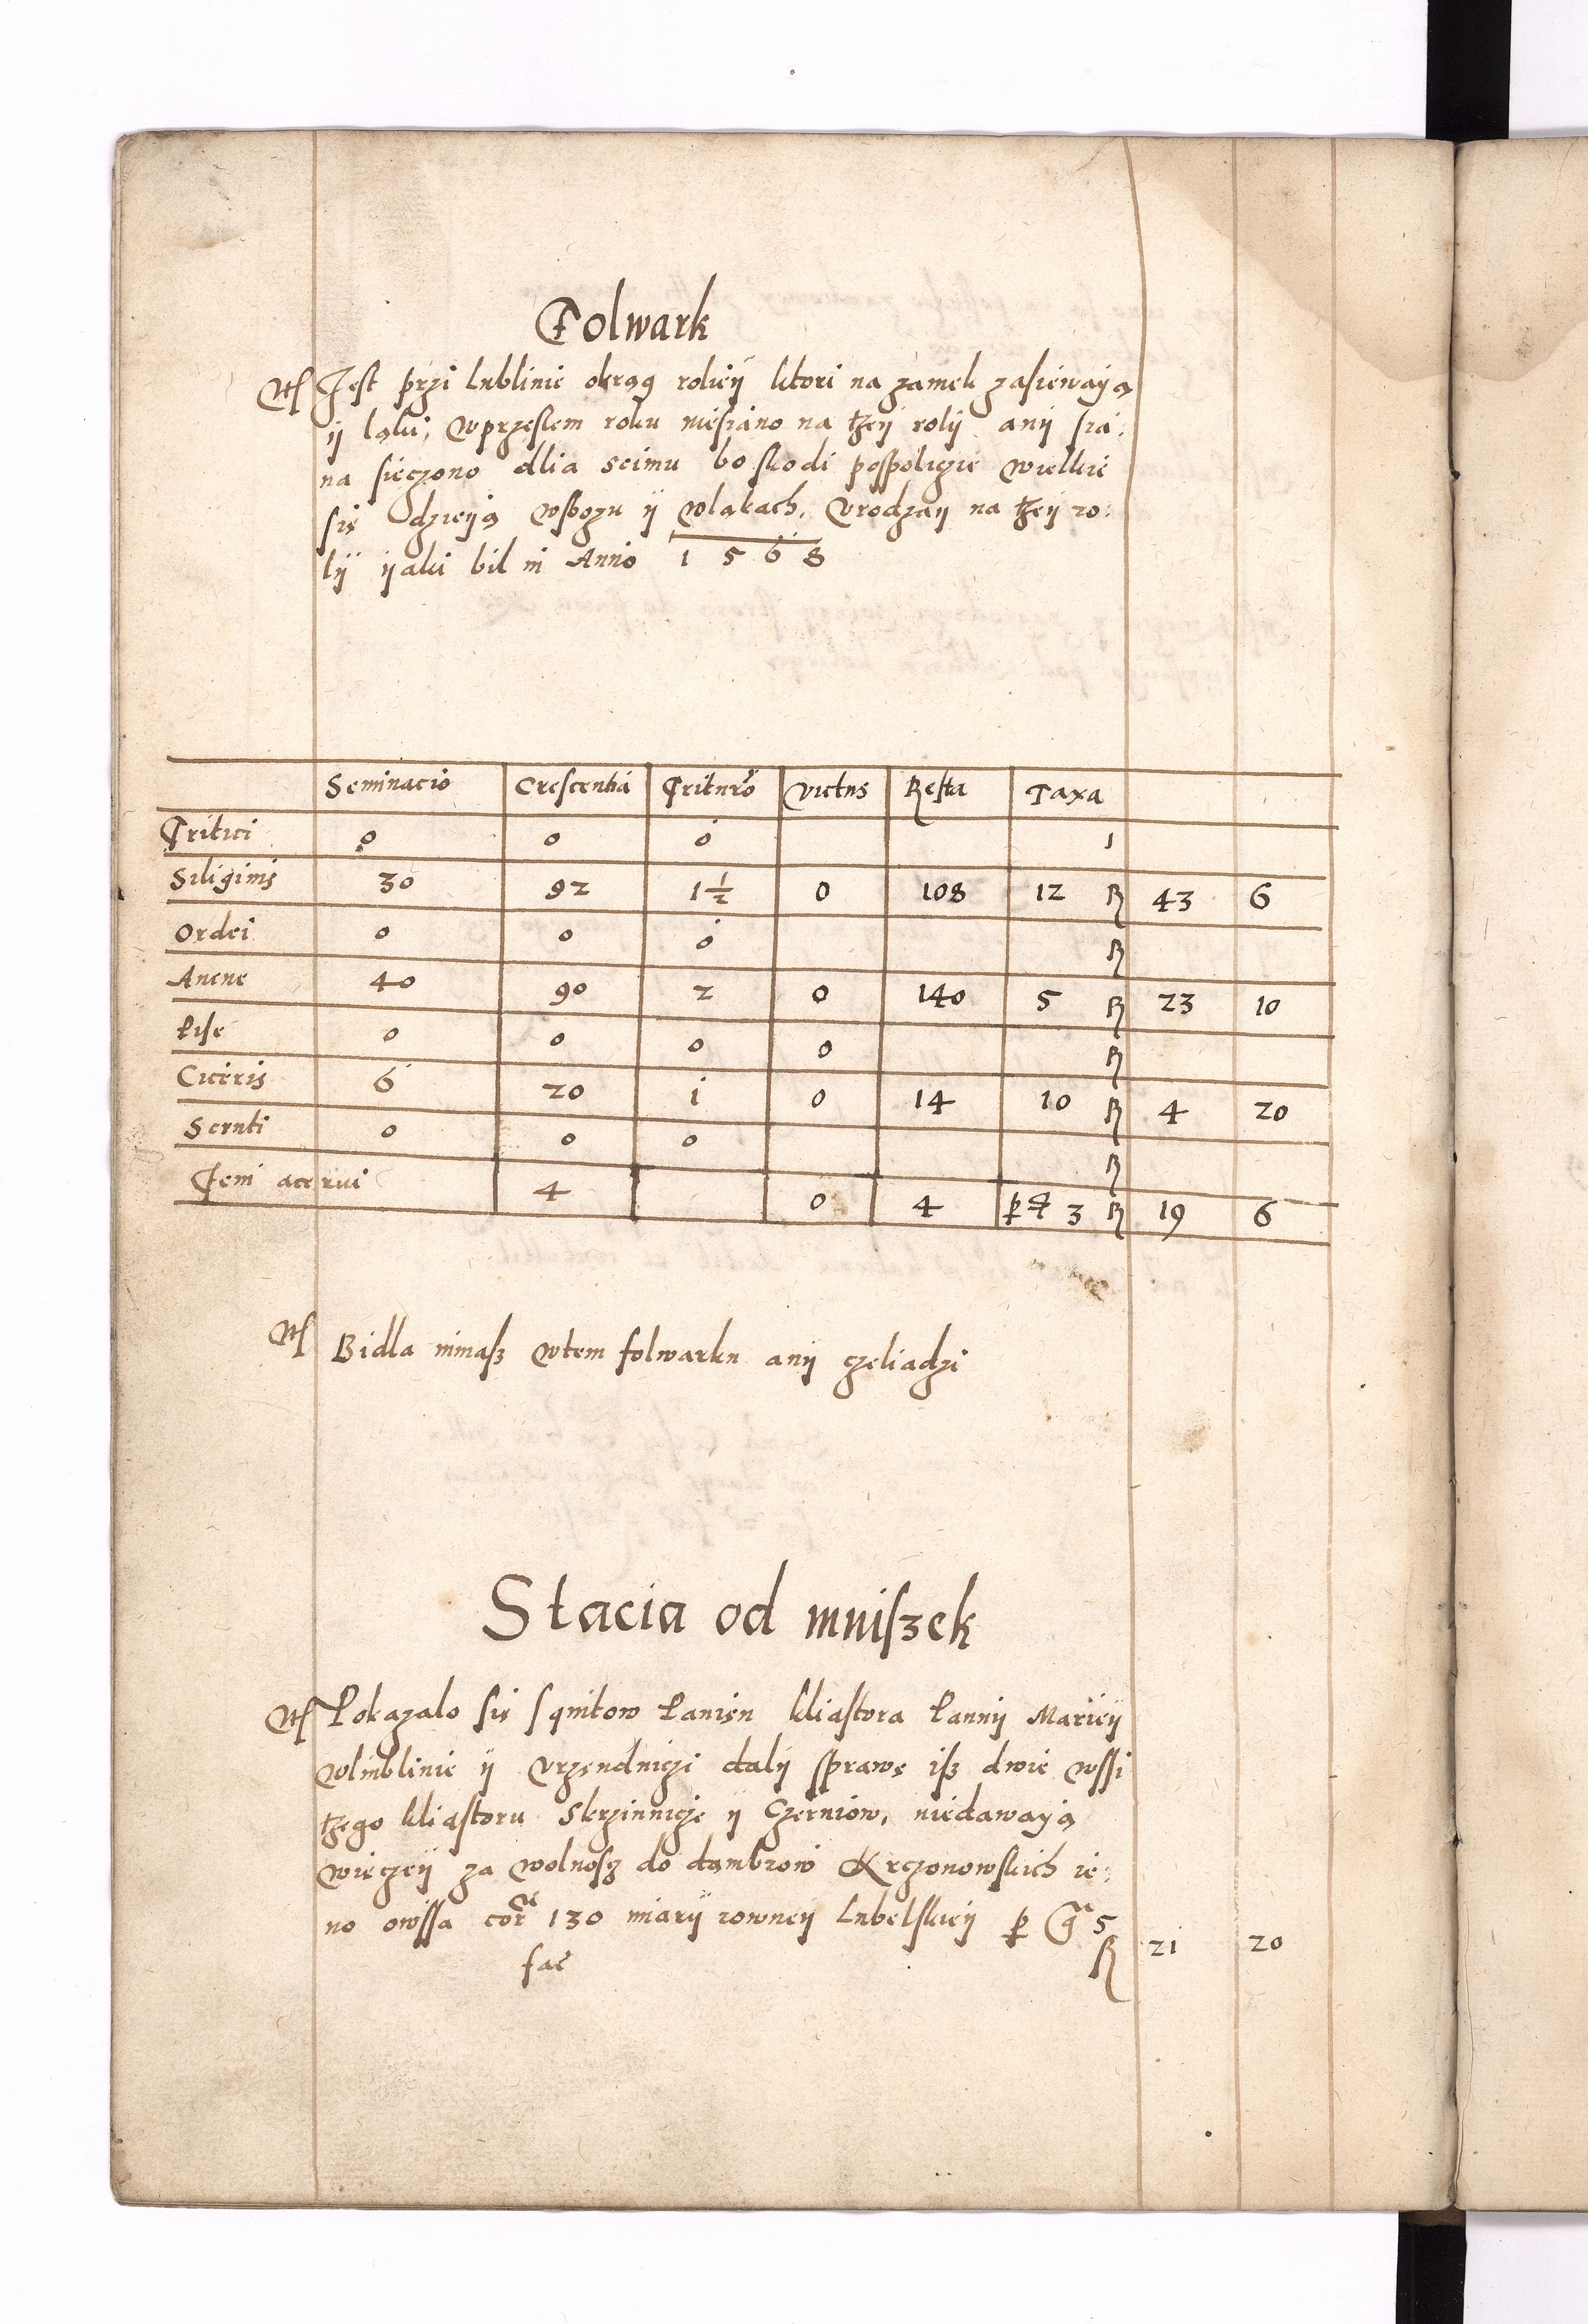 Folwark
Jest przi lublinie okrąg roliey ktori na zamek zasiewayą
ij łąki, wprzeslem roku niesiano na tzeij rolij anij sia:
na sieczono dlia seimu bo skodi pospoliczie wielkie
się dzieiją wsbozu ij wląkach, vrodzaij na tzeij ro:
lij ijaki bil in Anno 1568
Seminacio Crescentia Triturŏ victus Resta Taxa
Tritici 0 0 0 1
Siliginis 30 92 1 1/2 0 108 12 R 43 6
Ordei 0 0 0 R
Auene 40 90 2 0 140 5 R 23 10
Pise 0 0 0 0 R
Ciceris 6 20 1 0 14 10 R 4 20
Scruti 0 0 0 R
Feni acerui 4 0 4 p 3 R 19 6
Bidla nimasz wtem folwarku anij czeliadzi
Stacia od mniszek
Pokazalo się sqnitow Panien kliastora Pannij Marieij
wlublinie ij vrzendniczi dalij sprawę isz dwie wssi
tzego kliastoru Skrzinnicze ij Czerniow, niedawayą
wieczeij za wolnoscz do dambrowi Krczonowskich ie:
no owssa cor 130 miarij rowneij lubelskieij p g 5
fac R 21 20